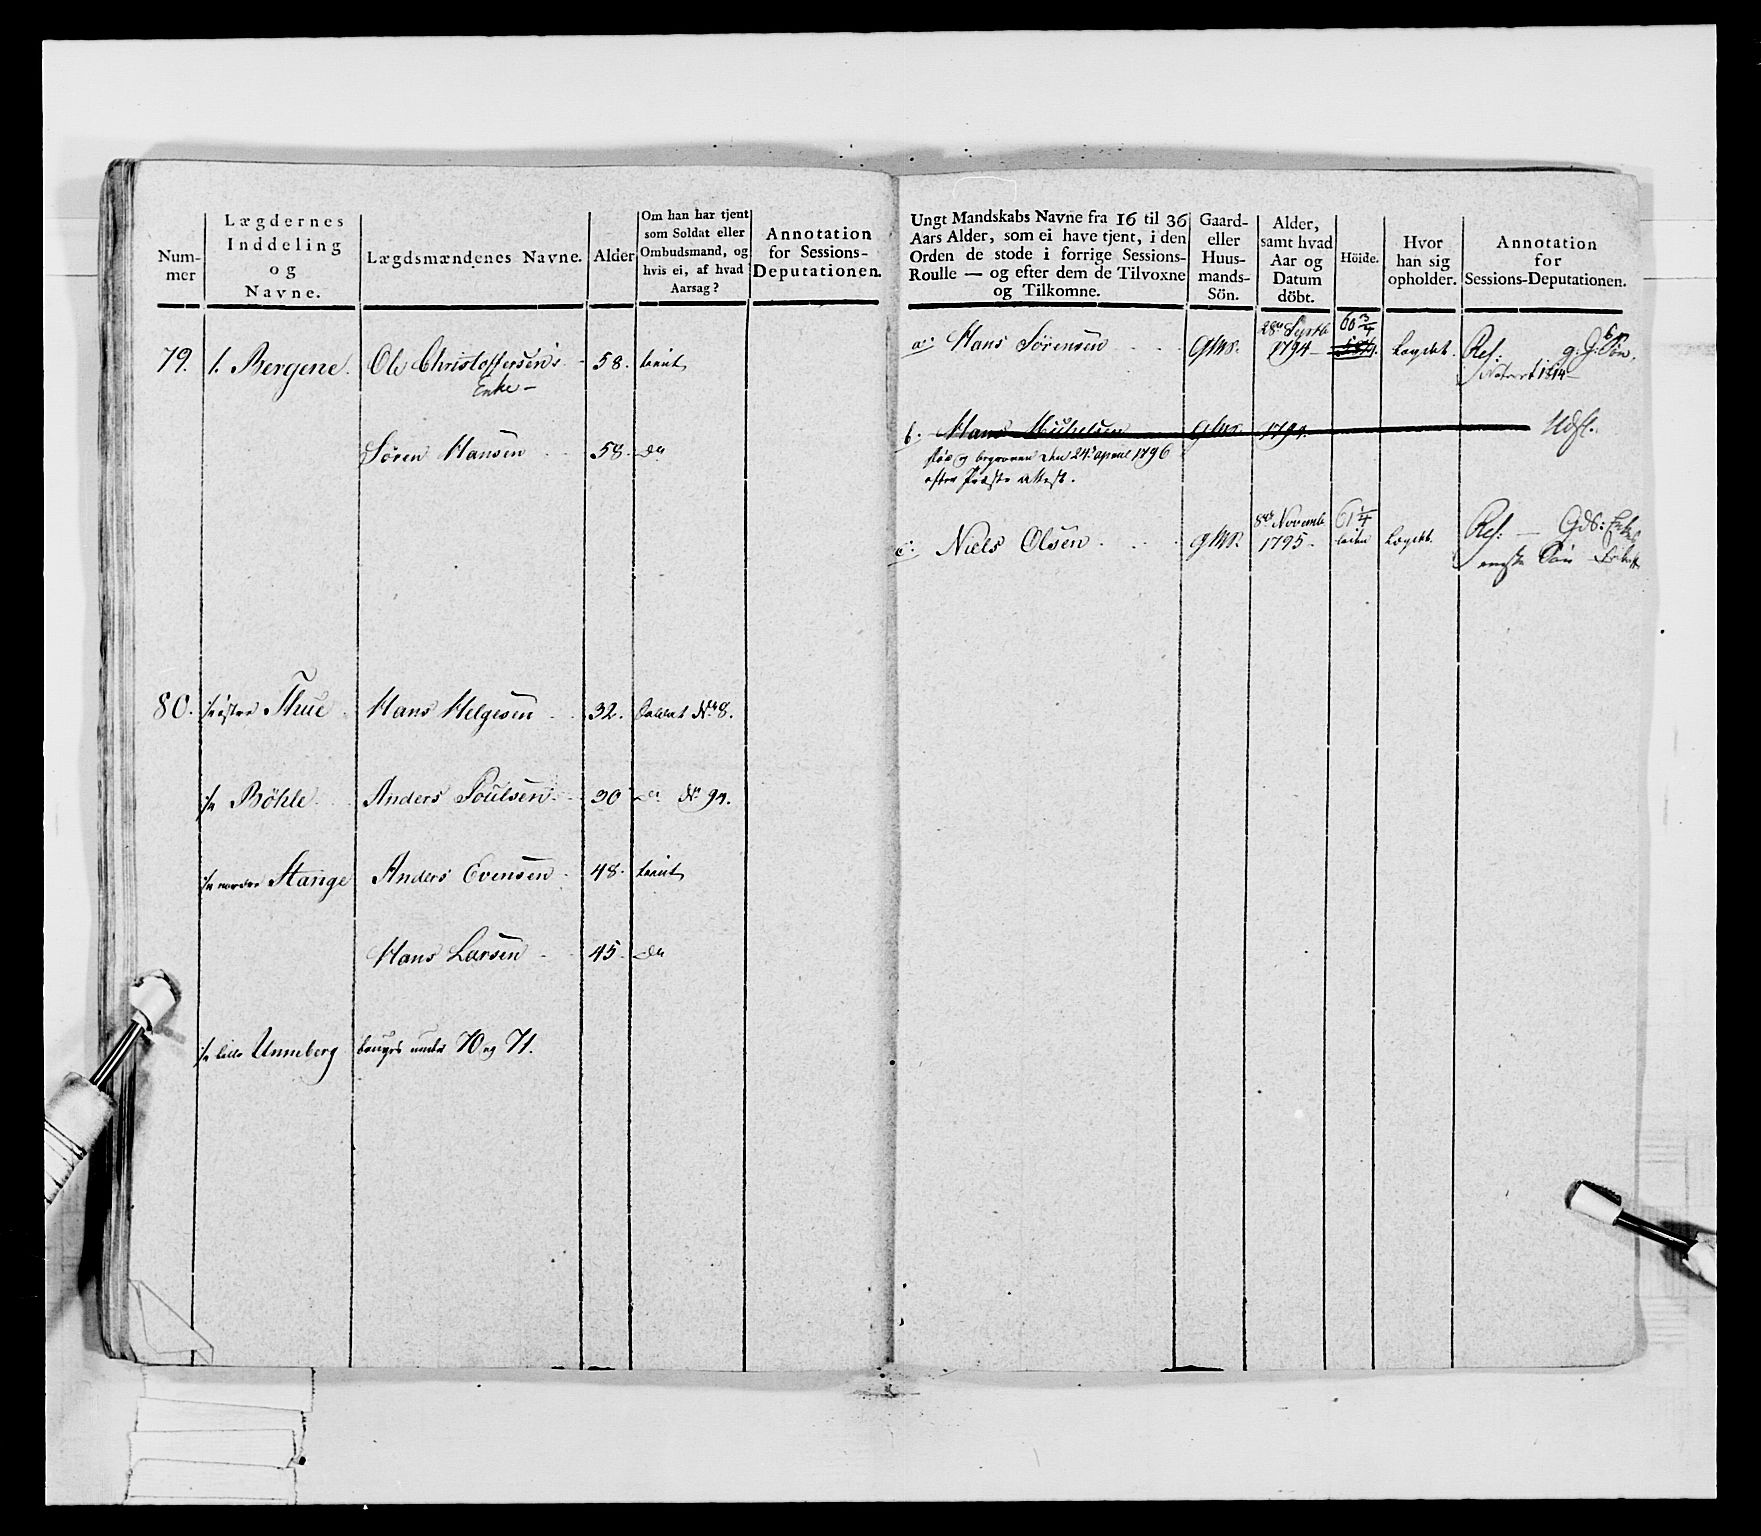 Num-
mer
Lægdernes
Inddeling
og
Navne.
Lægdsmændenes Navne.
Alder
Om han har tjent
som Soldat eller
Ombudsmand, og
hvis ei, af hvad
Aarsag?
Annotation
for Sessions-
Deputationen.
79. 1. Bergene. Ole Christoffersen's 58. tient
Enke —
Sören Hansen 58. do
80. Thue Hans Helgesen 32. Soldat No 8.
Böhle Anders Poulsen 30 do No 94.
nordre Stange Anders Evensen 48. tient
Hans Larsen 45. do
lille Unneberg bruges under 70 og 71.
Ungt Mandskabs Navne fra 16 til 36
Aars Alder, som ei have tjent, i den
Orden de stode i forrige Sessions-
Roulle — og efter dem de Tilvoxne
og Tilkomne.
Gaard-
eller
Huus-
mands-
Sön.
Alder,
samt hvad
Aar og
Datum
döbt.
Höide.
Hvor
han sig
opholder.
Annotation
for
Sessions-Deputationen.
60 3/4
a. Hans Sörensen 1794 Lægdet. Ref:
1814
b. Hans Michelsen 1794. Udsl.
død og begraven den 24 April 1796
efter Præste Attest.
8de Novemb 61 1/4
c. Niels Olsen 1795. Lægdet. Ref: —
eneste Sön